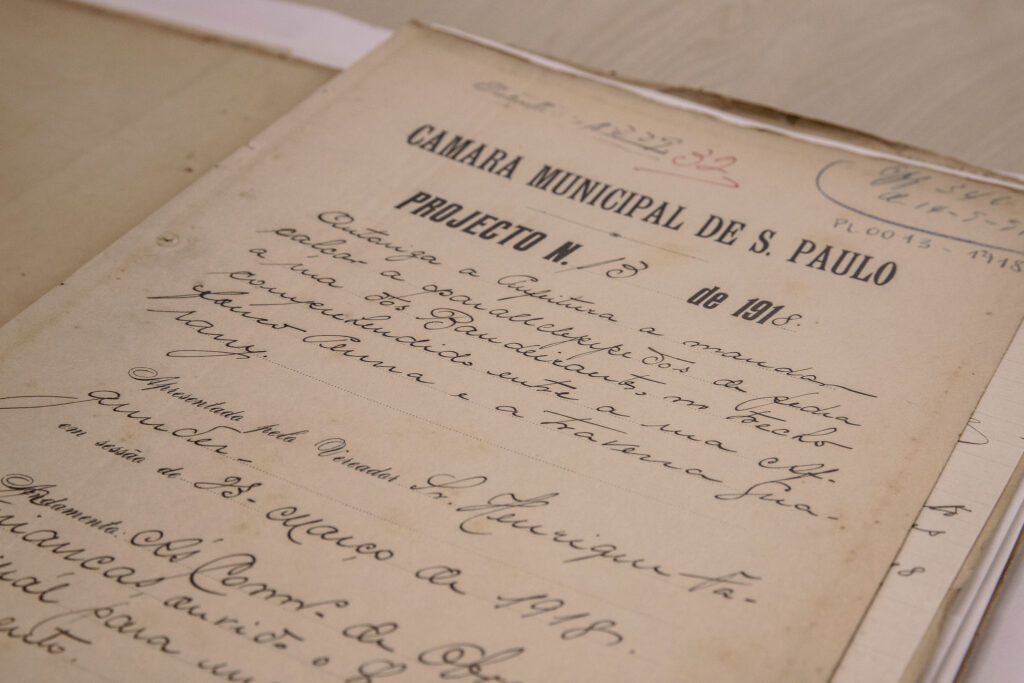 1222 32
CAMARA MUNICIPAL DE S. PAULO
de 14-5-
PL0013-1918
PROJECTO N. 13 de 1918.
Autoriza a Prefeitura a mandar
calçar a parallelepipedos de pedra
a rua dos Bandeirantes, no trecho
comprehendido entre a rua Af-
fonso Penna e a travessa Gua-
rany.
Apresentado pelo Vereador Sr. Henrique Fa-
gundes.
em sessão de 23 Março de 1918.
Andamento. Ás Comms. de Obras
Finanças, ouvido o
para